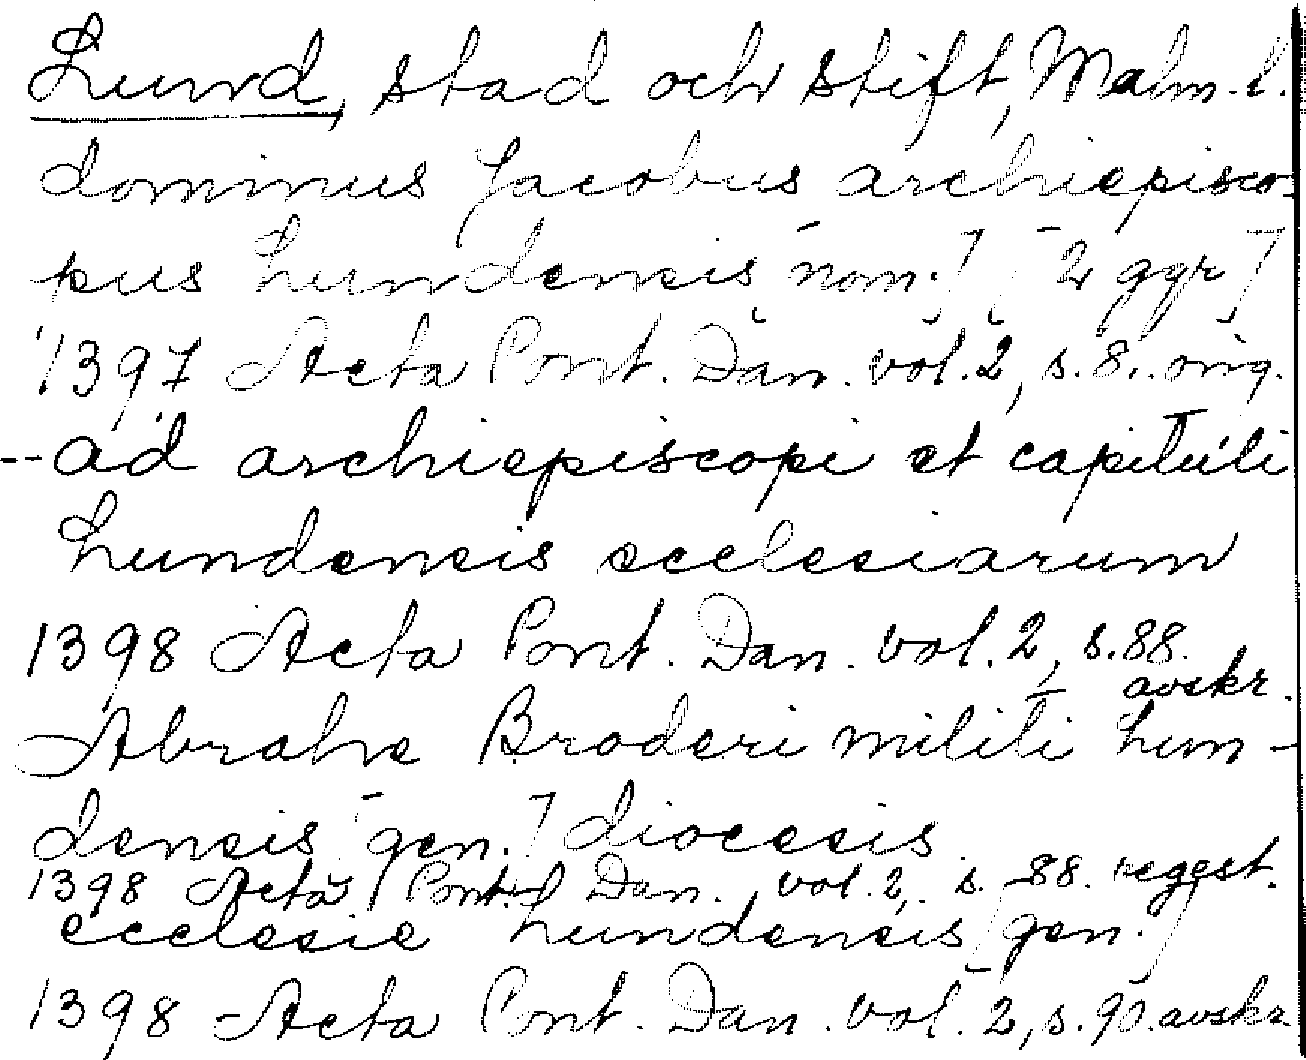 Lund, stad och stift, Malm. l.
dominus Jacobus archiepisco-
pus Lundensis [nom.] [2 ggr]
1397 Acta Pont. Dan. vol. 2, s. 8. orig.
-- ad archiepiscopi et capituli
Lundensis ecclesiarum
1398 Acta Pont. Dan. vol. 2, s. 88.
avskr.
Abrahe Broderi militi Lun-
densis [gen.] diocesis
1398 Acta Pont. Dan. vol. 2, s. 88. regest.
ecclesie Lundensis [gen.]
1398 Acta Pont. Dan. vol. 2, s. 90. avskr.